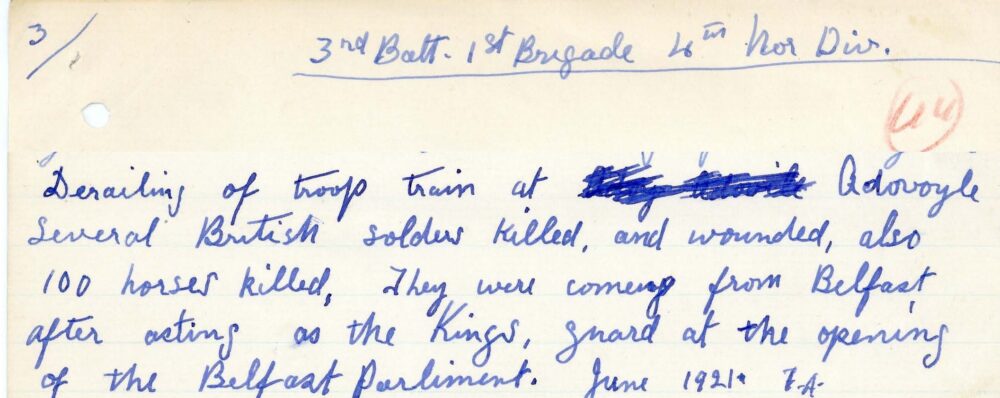 3/
3rd Batt. 1st Brigade 4th Nor Div.
44
Derailing of troop train at Adovoyle
Several British solders killed, and wounded, also
100 horses killed, They were comeing from Belfast
after acting as the Kings, guard at the opening
of the Belfast Parliment. June 1921. F.A.